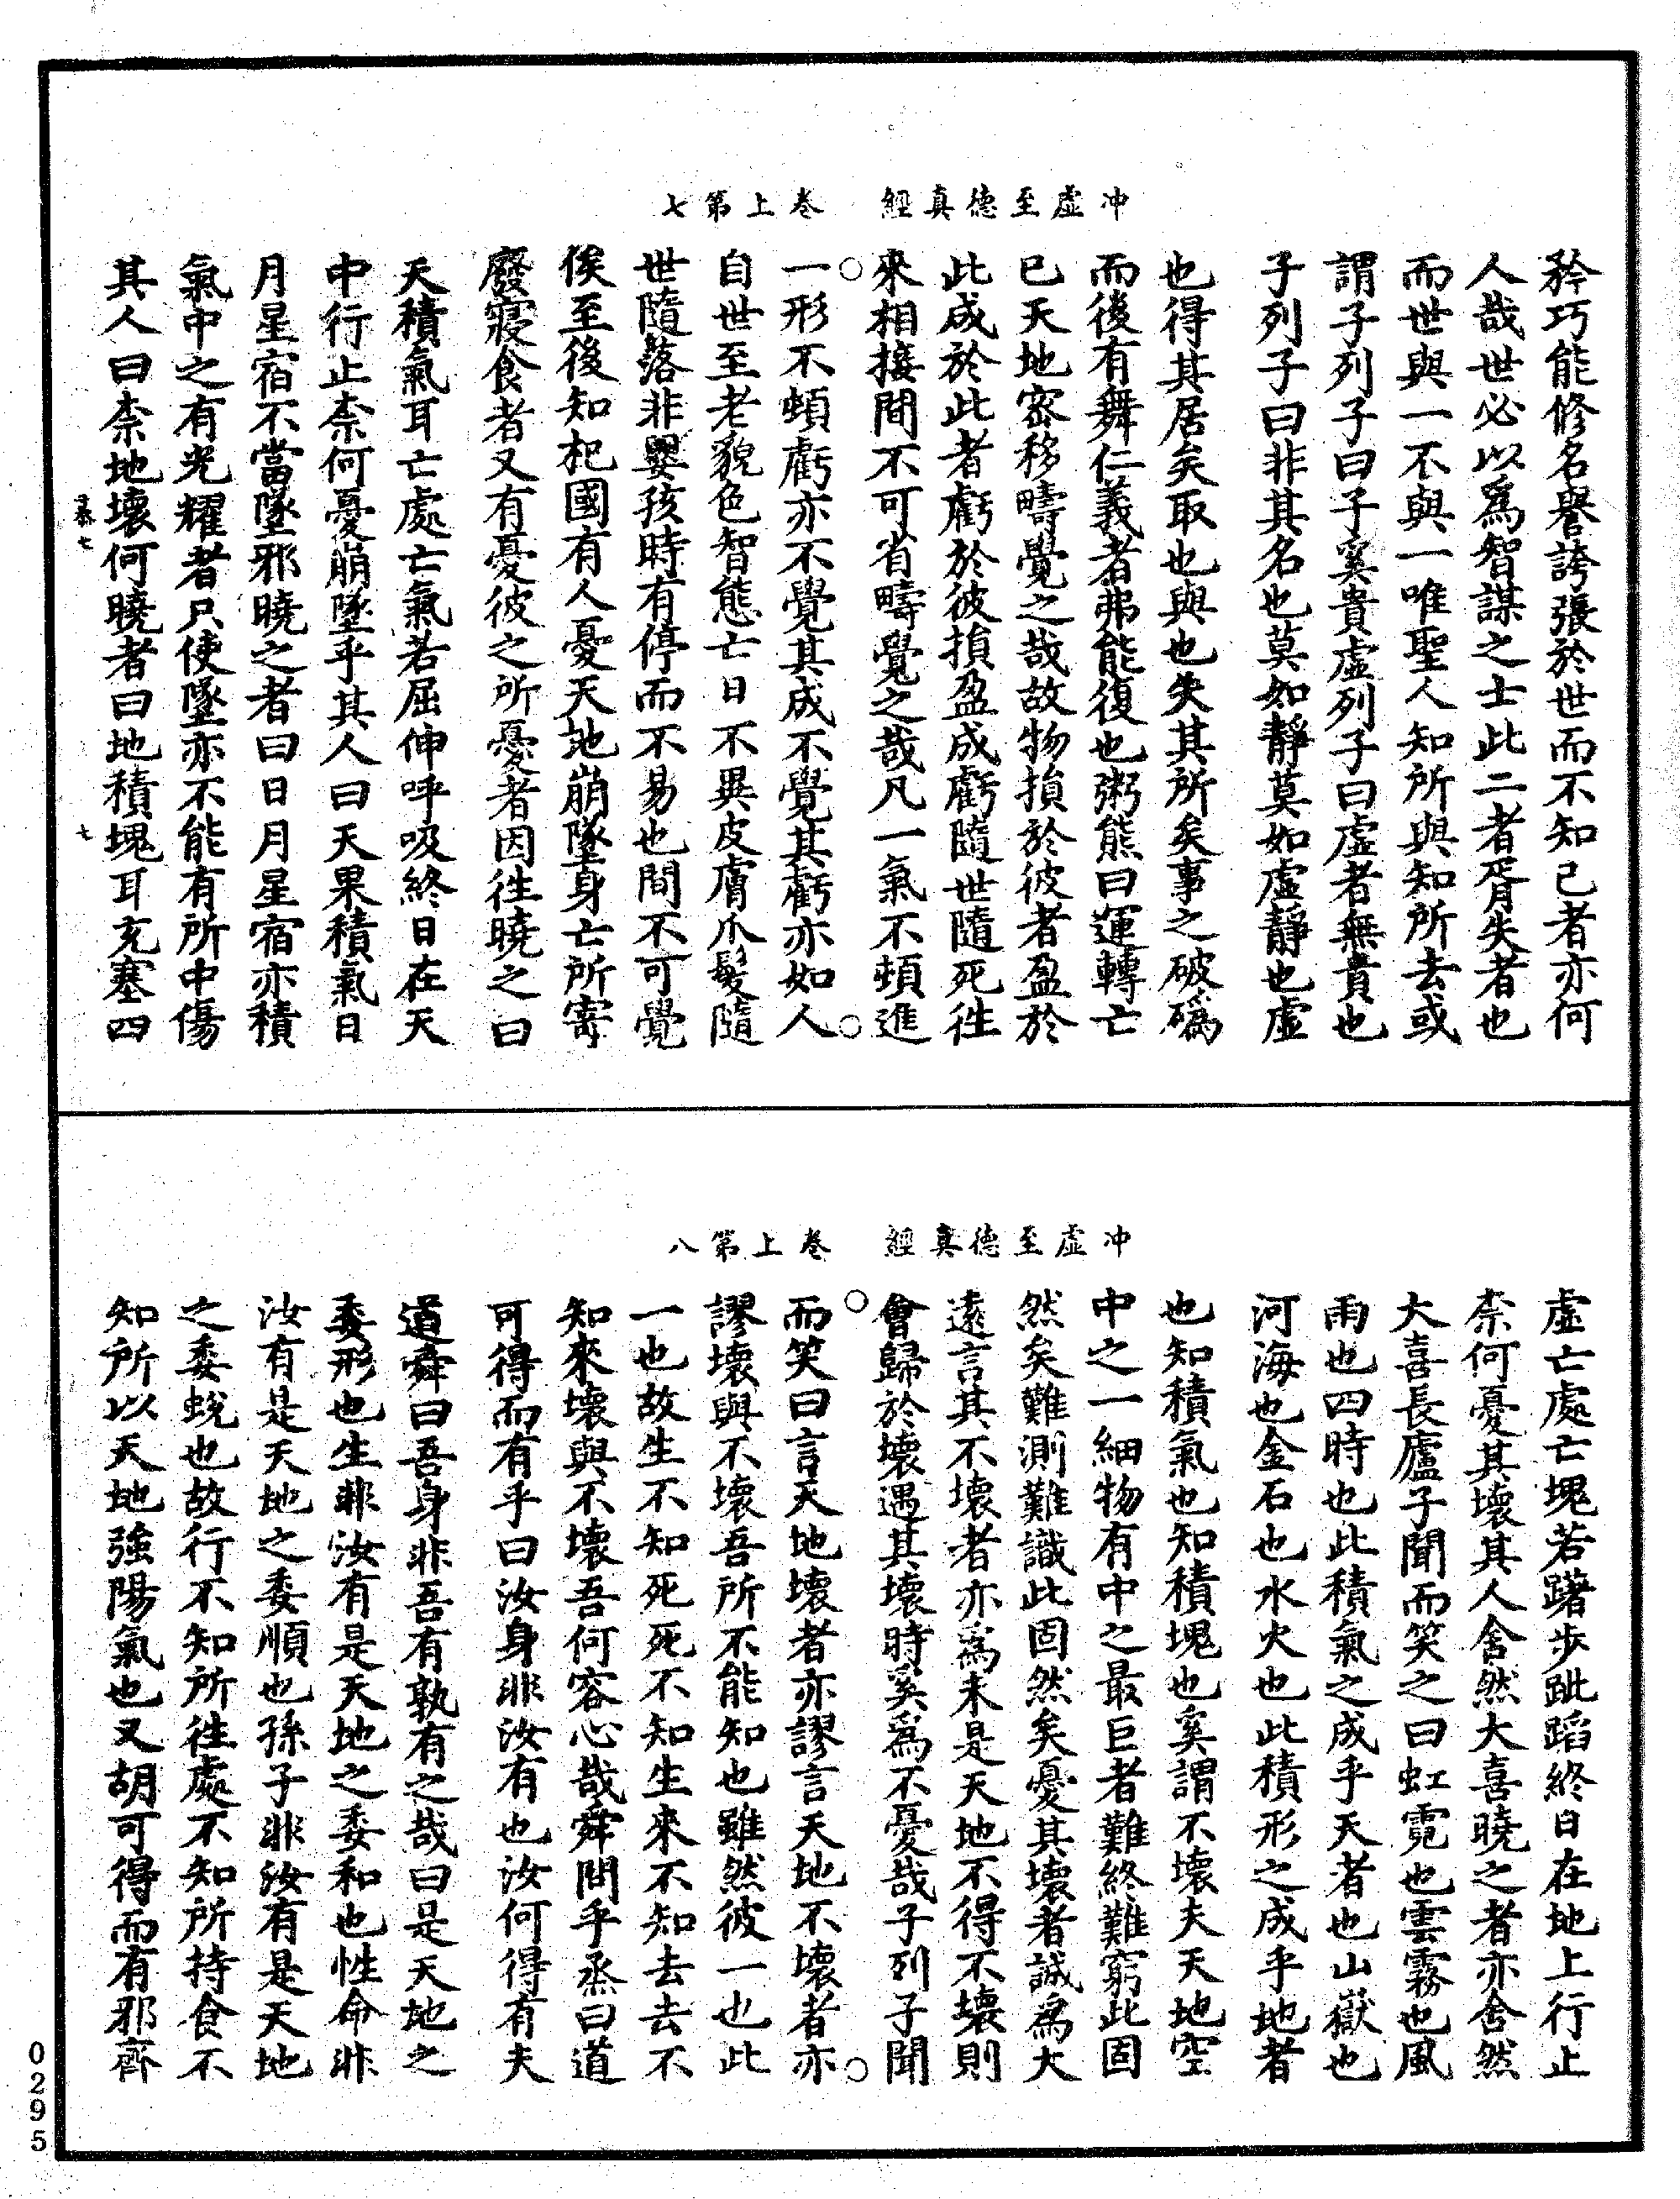 冲虛至德真經　卷上第七
矜巧能修名譽誇張於世而不知已者亦何
人哉世必以爲智謀之士此二者胥失者也
而世與一不與一唯聖人知所與知所去或
謂子列子曰子奚貴虛列子曰虛者無貴也
子列子曰非其名也莫如靜莫如虛靜也虛
也得其居矣取也與也失其所矣事之破䃣
而後有舞仁義者弗能復也粥熊曰運轉亡
已天地密移疇覺之哉故物損於彼者盈於
此成於此者虧於彼損盈成虧隨世隨死徃
來相接間不可省疇覺之哉凡一氣不頓進
一形不頓虧亦不覺其成不覺其虧亦如人
自世至老貌色智態亡日不異皮膚爪髮隨
世隨落非嬰孩時有停而不易也間不可覺
俟至後知杞國有人憂天地崩墜身亡所寄
廢寢食者又有憂彼之所憂者因徃曉之曰
天積氣耳亡處亡氣若屈伸呼吸終日在天
中行止柰何憂崩墜乎其人曰天果積氣日
月星宿不當墜邪曉之者曰日月星宿亦積
氣中之有光耀者只使墜亦不能有所中傷
其人曰柰地壞何曉者曰地積塊耳充塞四
七
冲虛至德真經　卷上第八
虛亡處亡塊若躇步跐蹈終日在地上行止
柰何憂其壞其人舍然大喜曉之者亦舍然
大喜長廬子聞而笑之曰虹霓也雲霧也風
雨也四時也此積氣之成乎天者也山嶽也
河海也金石也水火也此積形之成乎地者
也知積氣也知積塊也奚謂不壞夫天地空
中之一細物有中之最巨者難終難窮此固
然矣難測難識此固然矣憂其壞者誠爲大
遠言其不壞者亦爲未是天地不得不壞則
會歸於壞遇其壞時奚爲不憂哉子列子聞
而笑曰言天地壞者亦謬言天地不壞者亦
謬壞與不壞吾所不能知也雖然彼一也此
一也故生不知死死不知生來不知去去不
知來壞與不壞吾何容心哉舜問乎烝曰道
可得而有乎曰汝身非汝有也汝何得有夫
道舜曰吾身非吾有孰有之哉曰是天地之
委形也生非汝有是天地之委和也性命非
汝有是天地之委順也孫子非汝有是天地
之委蛻也故行不知所徃處不知所持食不
知所以天地強陽氣也又胡可得而有邪齊
0295